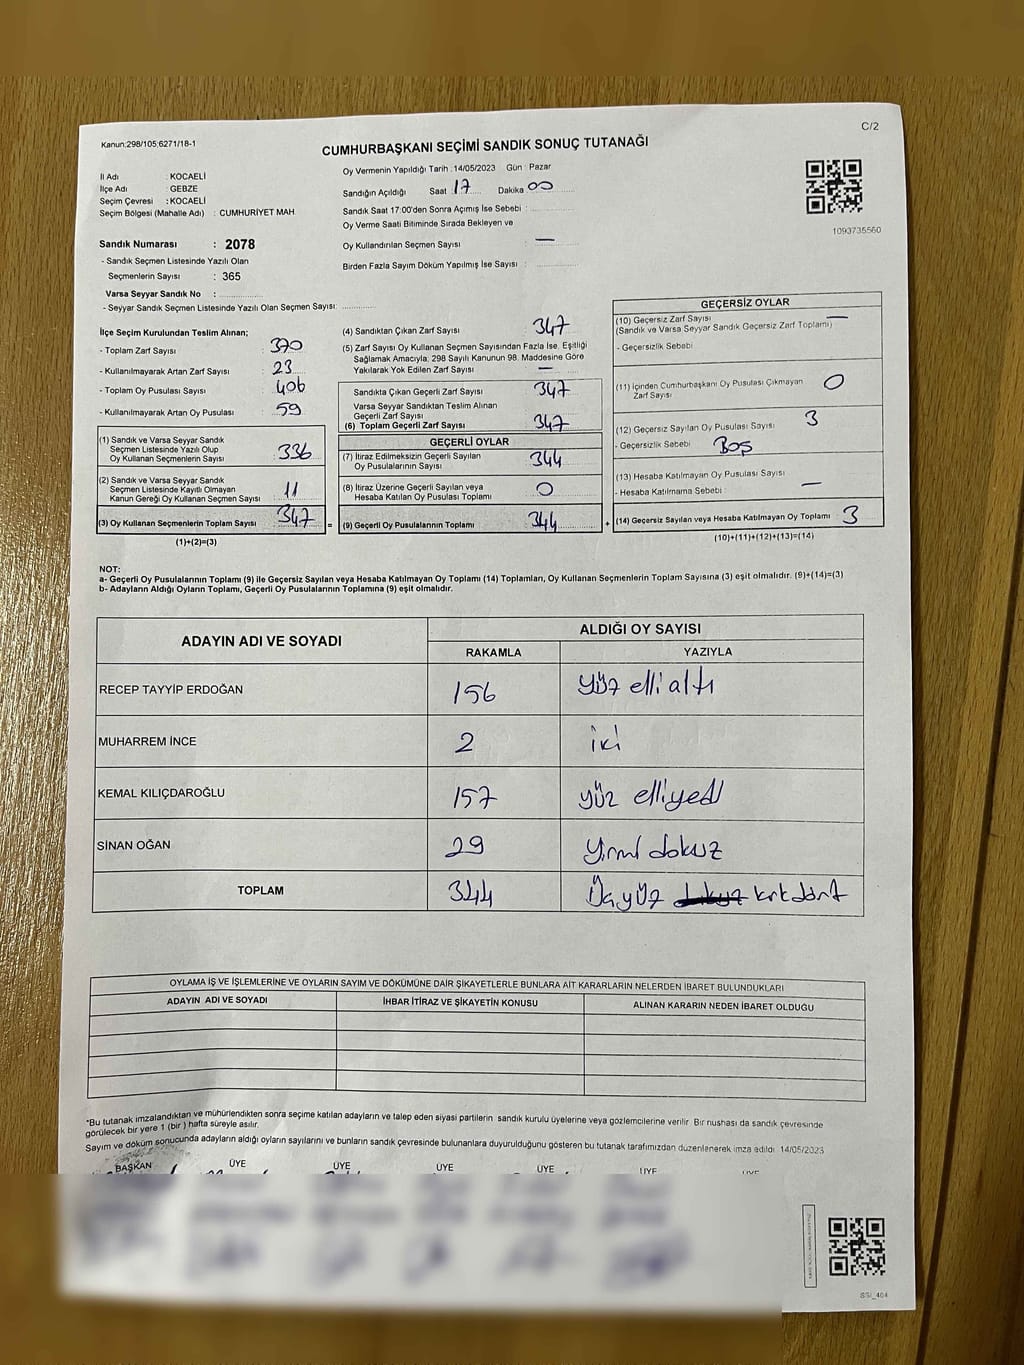 Kanun:298/105;6271/18-1
C/2
CUMHURBAŞKANI SEÇİMİ SANDIK SONUÇ TUTANAĞI
İl Adı : KOCAELİ
İlçe Adı : GEBZE
Seçim Çevresi : KOCAELİ
Seçim Bölgesi (Mahalle Adı) : CUMHURİYET MAH.
Sandık Numarası : 2078
- Sandık Seçmen Listesinde Yazılı Olan
Seçmenlerin Sayısı : 365
Varsa Seyyar Sandık No :
- Seyyar Sandık Seçmen Listesinde Yazılı Olan Seçmen Sayısı:
Oy Vermenin Yapıldığı Tarih :14/05/2023 Gün : Pazar
Sandığın Açıldığı Saat 17 Dakika 00
Sandık Saat 17:00'den Sonra Açımış İse Sebebi :
Oy Verme Saati Bitiminde Sırada Bekleyen ve
Oy Kullandırılan Seçmen Sayısı : —
Birden Fazla Sayım Döküm Yapılmış İse Sayısı :
1093735560
İlçe Seçim Kurulundan Teslim Alınan;
- Toplam Zarf Sayısı : 370
- Kullanılmayarak Artan Zarf Sayısı : 23
- Toplam Oy Pusulası Sayısı : 406
- Kullanılmayarak Artan Oy Pusulası : 59
(1) Sandık ve Varsa Seyyar Sandık
Seçmen Listesinde Yazılı Olup
Oy Kullanan Seçmenlerin Sayısı : 336
(2) Sandık ve Varsa Seyyar Sandık
Seçmen Listesinde Kayıtlı Olmayan
Kanun Gereği Oy Kullanan Seçmen Sayısı : 11
(3) Oy Kullanan Seçmenlerin Toplam Sayısı : 347
(1)+(2)=(3)
(4) Sandıktan Çıkan Zarf Sayısı : 347
(5) Zarf Sayısı Oy Kullanan Seçmen Sayısından Fazla İse, Eşitliği
Sağlamak Amacıyla; 298 Sayılı Kanunun 98. Maddesine Göre
Yakılarak Yok Edilen Zarf Sayısı : —
Sandıkta Çıkan Geçerli Zarf Sayısı : 347
Varsa Seyyar Sandıktan Teslim Alınan
Geçerli Zarf Sayısı
(6) Toplam Geçerli Zarf Sayısı : 347
GEÇERLİ OYLAR
(7) İtiraz Edilmeksizin Geçerli Sayılan
Oy Pusulalarının Sayısı : 344
(8) İtiraz Üzerine Geçerli Sayılan veya
Hesaba Katılan Oy Pusulası Toplamı : 0
= (9) Geçerli Oy Pusulalarının Toplamı : 344 +
GEÇERSİZ OYLAR
(10) Geçersiz Zarf Sayısı : —
(Sandık ve Varsa Seyyar Sandık Geçersiz Zarf Toplamı)
- Geçersizlik Sebebi :
(11) İçinden Cumhurbaşkanı Oy Pusulası Çıkmayan
Zarf Sayısı : 0
(12) Geçersiz Sayılan Oy Pusulası Sayısı : 3
- Geçersizlik Sebebi : Boş
(13) Hesaba Katılmayan Oy Pusulası Sayısı :
- Hesaba Katılmama Sebebi : —
(14) Geçersiz Sayılan veya Hesaba Katılmayan Oy Toplamı : 3
(10)+(11)+(12)+(13)=(14)
NOT:
a- Geçerli Oy Pusulalarının Toplamı (9) ile Geçersiz Sayılan veya Hesaba Katılmayan Oy Toplamı (14) Toplamları, Oy Kullanan Seçmenlerin Toplam Sayısına (3) eşit olmalıdır. (9)+(14)=(3)
b- Adayların Aldığı Oyların Toplamı, Geçerli Oy Pusulalarının Toplamına (9) eşit olmalıdır.
ADAYIN ADI VE SOYADI ALDIĞI OY SAYISI
RAKAMLA YAZIYLA
RECEP TAYYİP ERDOĞAN 156 yüz elli altı
MUHARREM İNCE 2 iki
KEMAL KILIÇDAROĞLU 157 yüz elli yedi
SİNAN OĞAN 29 yirmi dokuz
TOPLAM 344 Üçyüz kırk dört
OYLAMA İŞ VE İŞLEMLERİNE VE OYLARIN SAYIM VE DÖKÜMÜNE DAİR ŞİKAYETLERLE BUNLARA AİT KARARLARIN NELERDEN İBARET BULUNDUKLARI
ADAYIN ADI VE SOYADI İHBAR İTİRAZ VE ŞİKAYETİN KONUSU ALINAN KARARIN NEDEN İBARET OLDUĞU
*Bu tutanak imzalandıktan ve mühürlendikten sonra seçime katılan adayların ve talep eden siyasi partilerin sandık kurulu üyelerine veya gözlemcilerine verilir. Bir nushası da sandık çevresinde
görülecek bir yere 1 (bir ) hafta süreyle asılır.
Sayım ve döküm sonucunda adayların aldığı oyların sayılarını ve bunların sandık çevresinde bulunanlara duyurulduğunu gösteren bu tutanak tarafımızdan düzenlenerek imza edildi. 14/05/2023
BAŞKAN ÜYE ÜYE ÜYE ÜYE ÜYE ÜYE
SSI_404